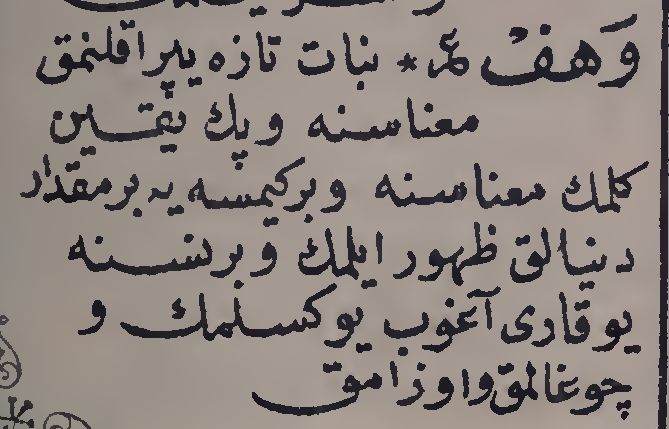 وَهفْ عم * نبات تازه يپراقلنمق
معناسنه وپك يقين
كلمك معناسنه وبركيمسه يه برمقدار
دنيالق ظهور ايلمك وبرنسنه
يوقارى آغوب يوكسلمك و
چوغالمق واوزامق